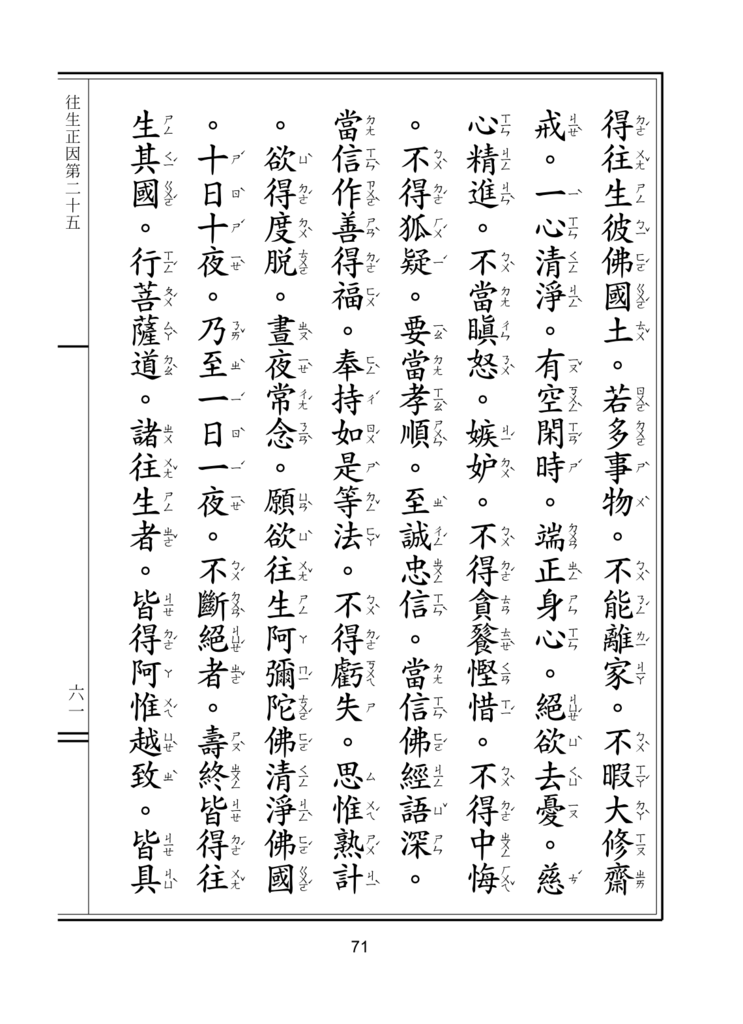 得往生彼佛國土。若多事物。不能離家。不暇大修齋
戒。一心清淨。有空閑時。端正身心。絕欲去憂。慈
心精進。不當瞋怒。嫉妒。不得貪餮慳惜。不得中悔
。不得狐疑。要當孝順。至誠忠信。當信佛經語深。
當信作善得福。奉持如是等法。不得虧失。思惟熟計
。欲得度脫。晝夜常念。願欲往生阿彌陀佛清淨佛國
。十日十夜。乃至一日一夜。不斷絕者。壽終皆得往
生其國。行菩薩道。諸往生者。皆得阿惟越致。皆具
往生正因第二十五
六一
71